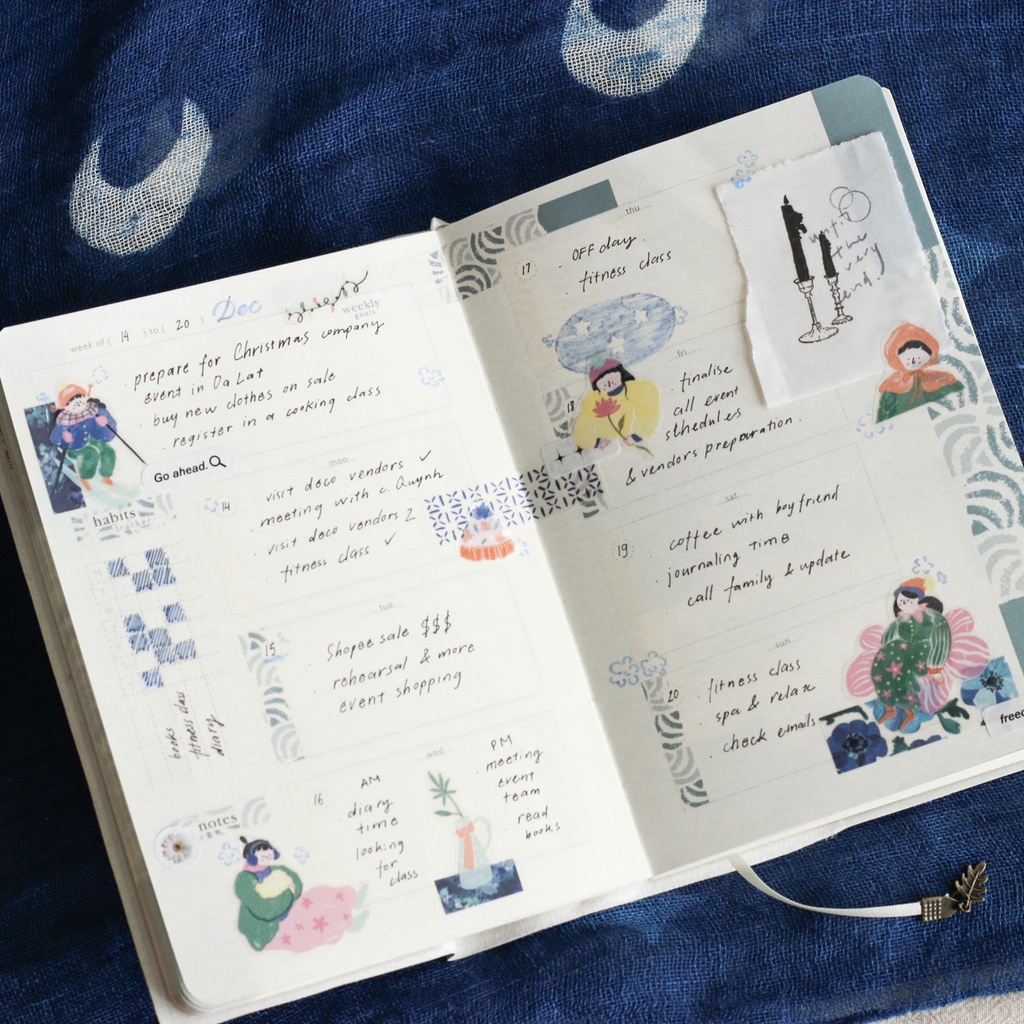 week of ( 14 ) to ( 20 ) Dec
weekly
goals
. prepare for Christmas company
event in Da Lat
. buy new clothes on sale
. register in a cooking class
Go ahead.
habits
tracker
books
fitness class
diary
mon
14
. visit deco vendors ✓
. meeting with c. Quynh
. visit deco vendors 2
. fitness class ✓
tue
15
. Shopee sale $$$
. rehearsal & more
event shopping
wed
16
AM
. diary
time
. looking
for
class
PM
. meeting
event
team
. read
books
notes
thu
17
. OFF day.
. fitness class
until
the
very
end.
fri
18
. finalise
call event
schedules
& vendors preparation.
sat
19
. coffee with boyfriend
. journaling time
. call family & update
sun
20
. fitness class
. spa & relax
. check emails